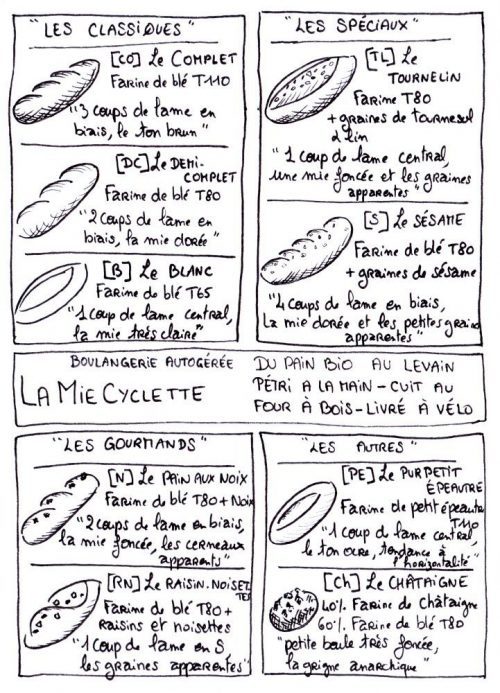 "LES CLASSIQUES"
[CO] Le COMPLET
Farine de blé T110
"3 coups de lame en
biais, le ton brun"
[DC] Le DEMI-
COMPLET
Farine de blé T80
"2 coups de lame en
biais, la mie dorée"
[B] Le BLANC
Farine de blé T65
"1 coup de lame central,
la mie très claire"
"LES SPÉCIAUX"
[TL] Le
TOURNELIN
Farine T80
+ graines de tournesol
& lin
"1 coup de lame central,
une mie foncée et les graines
apparentes"
[S] Le SÉSAME
Farine de blé T80
+ graines de sésame
"4 coups de lame en biais,
la mie dorée et les petites graines
apparentes"
BOULANGERIE AUTOGÉRÉE
LA MIE CYCLETTE
DU PAIN BIO AU LEVAIN
PÉTRI A LA MAIN - CUIT AU
FOUR À BOIS - LIVRÉ À VÉLO
"LES GOURMANDS"
[N] Le PAIN AUX NOIX
Farine de blé T80 + Noix
"2 coups de lame en biais,
la mie foncée, les cerneaux
apparents"
[RN] Le RAISIN. NOISET
TES
Farine de blé T80 +
raisins et noisettes
"1 coup de lame en S,
les graines apparentes"
"LES AUTRES"
[PE] Le PUR PETIT
ÉPEAUTRE
Farine de petit épeautre
T110
"1 coup de lame central,
le ton ocre, tendance à
l'horizontalité"
[Ch] Le CHÂTAIGNE
40% Farine de Châtaigne
60% Farine de blé T80
"petite boule très foncée,
la grigne anarchique"